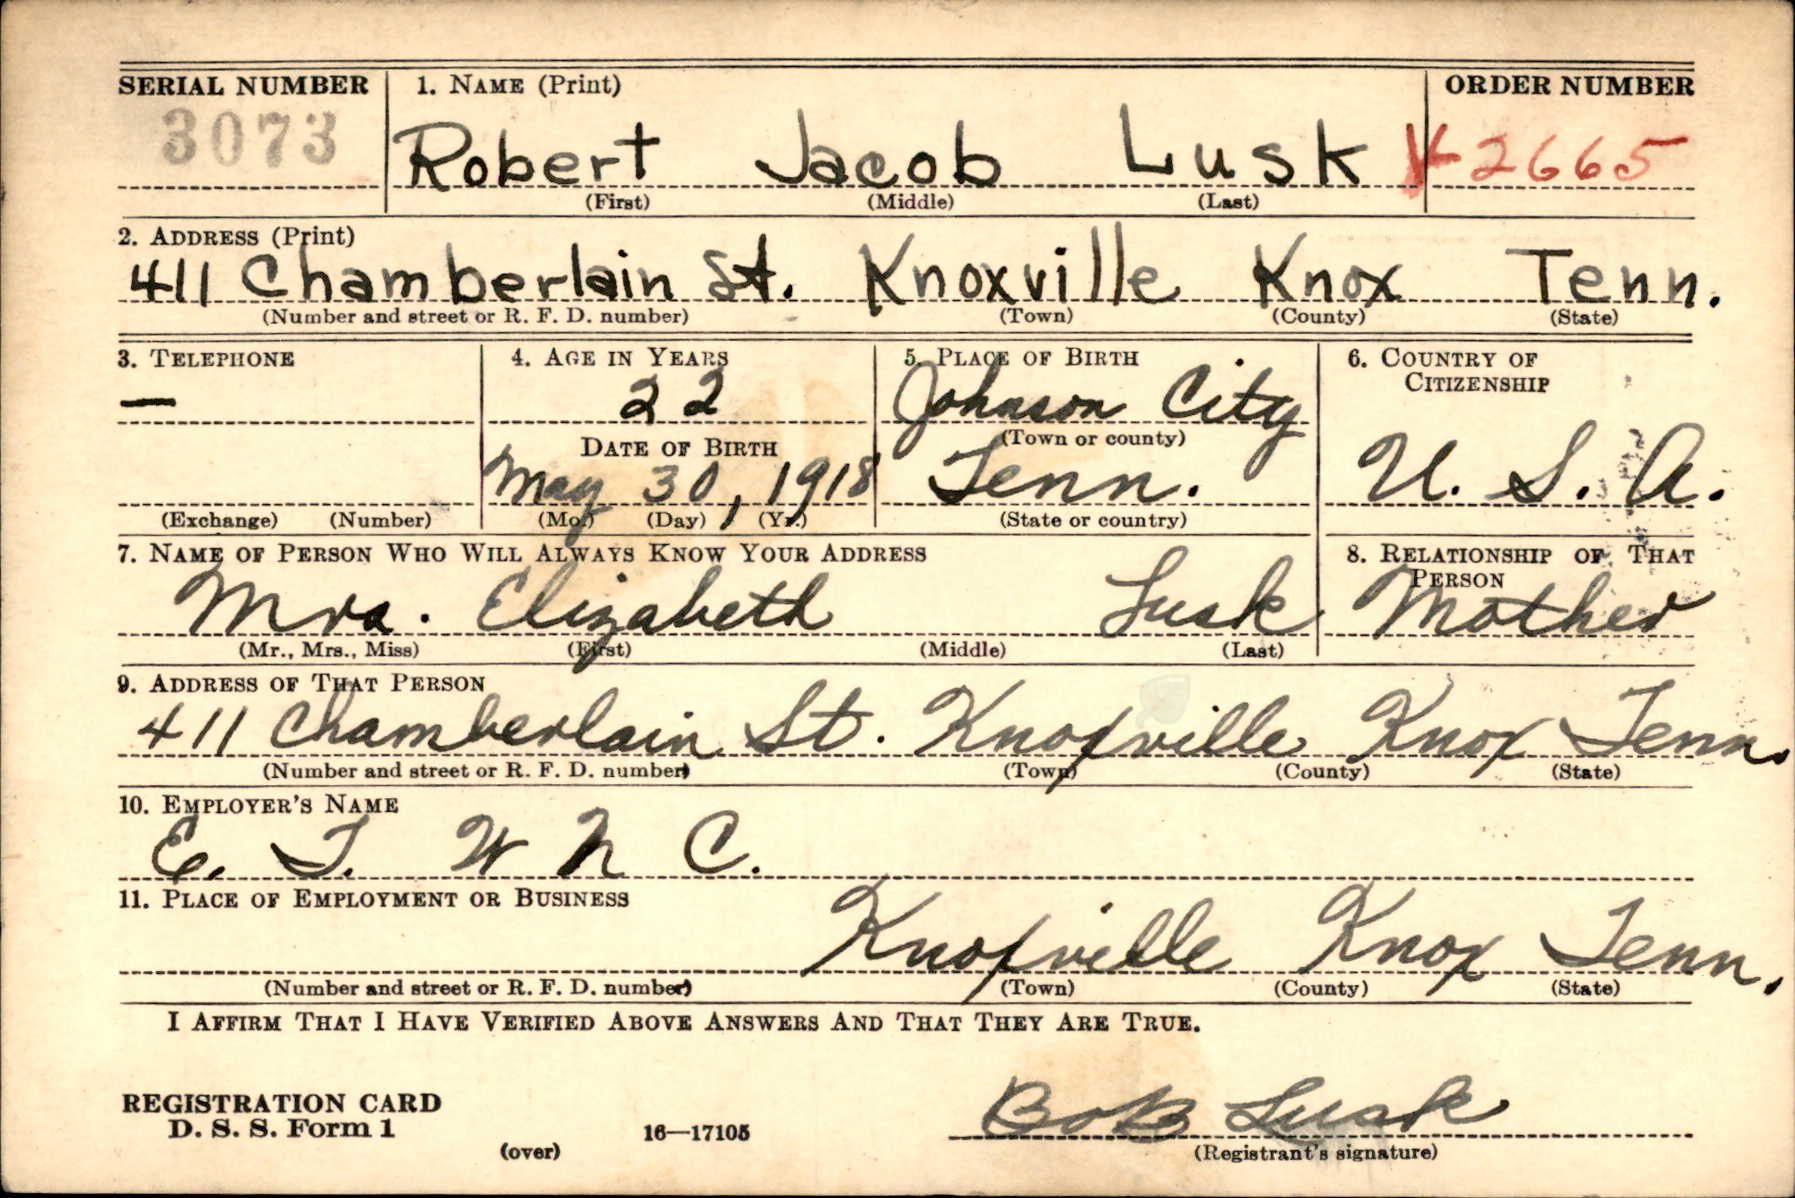 SERIAL NUMBER 1. NAME (Print) ORDER NUMBER
3073 Robert Jacob Lusk V 2665
(First) (Middle) (Last)
2. ADDRESS (Print)
411 Chamberlain St. Knoxville Knox Tenn.
(Number and street or R. F. D. number) (Town) (County) (State)
3. TELEPHONE 4. AGE IN YEARS 5. PLACE OF BIRTH 6. COUNTRY OF
CITIZENSHIP
— 22 Johnson City
DATE OF BIRTH (Town or county)
May 30, 1918 Tenn. U. S. A.
(Exchange) (Number) (Mo.) (Day) (Yr.) (State or country)
7. NAME OF PERSON WHO WILL ALWAYS KNOW YOUR ADDRESS 8. RELATIONSHIP OF THAT
PERSON
Mrs. Elizabeth Lusk Mother
(Mr., Mrs., Miss) (First) (Middle) (Last)
9. ADDRESS OF THAT PERSON
411 Chamberlain St. Knoxville Knox Tenn.
(Number and street or R. F. D. number) (Town) (County) (State)
10. EMPLOYER'S NAME
E. T. W N C.
11. PLACE OF EMPLOYMENT OR BUSINESS
Knoxville Knox Tenn.
(Number and street or R. F. D. number) (Town) (County) (State)
I AFFIRM THAT I HAVE VERIFIED ABOVE ANSWERS AND THAT THEY ARE TRUE.
REGISTRATION CARD
D. S. S. Form 1 Bob Lusk
(over) 16—17105 (Registrant's signature)